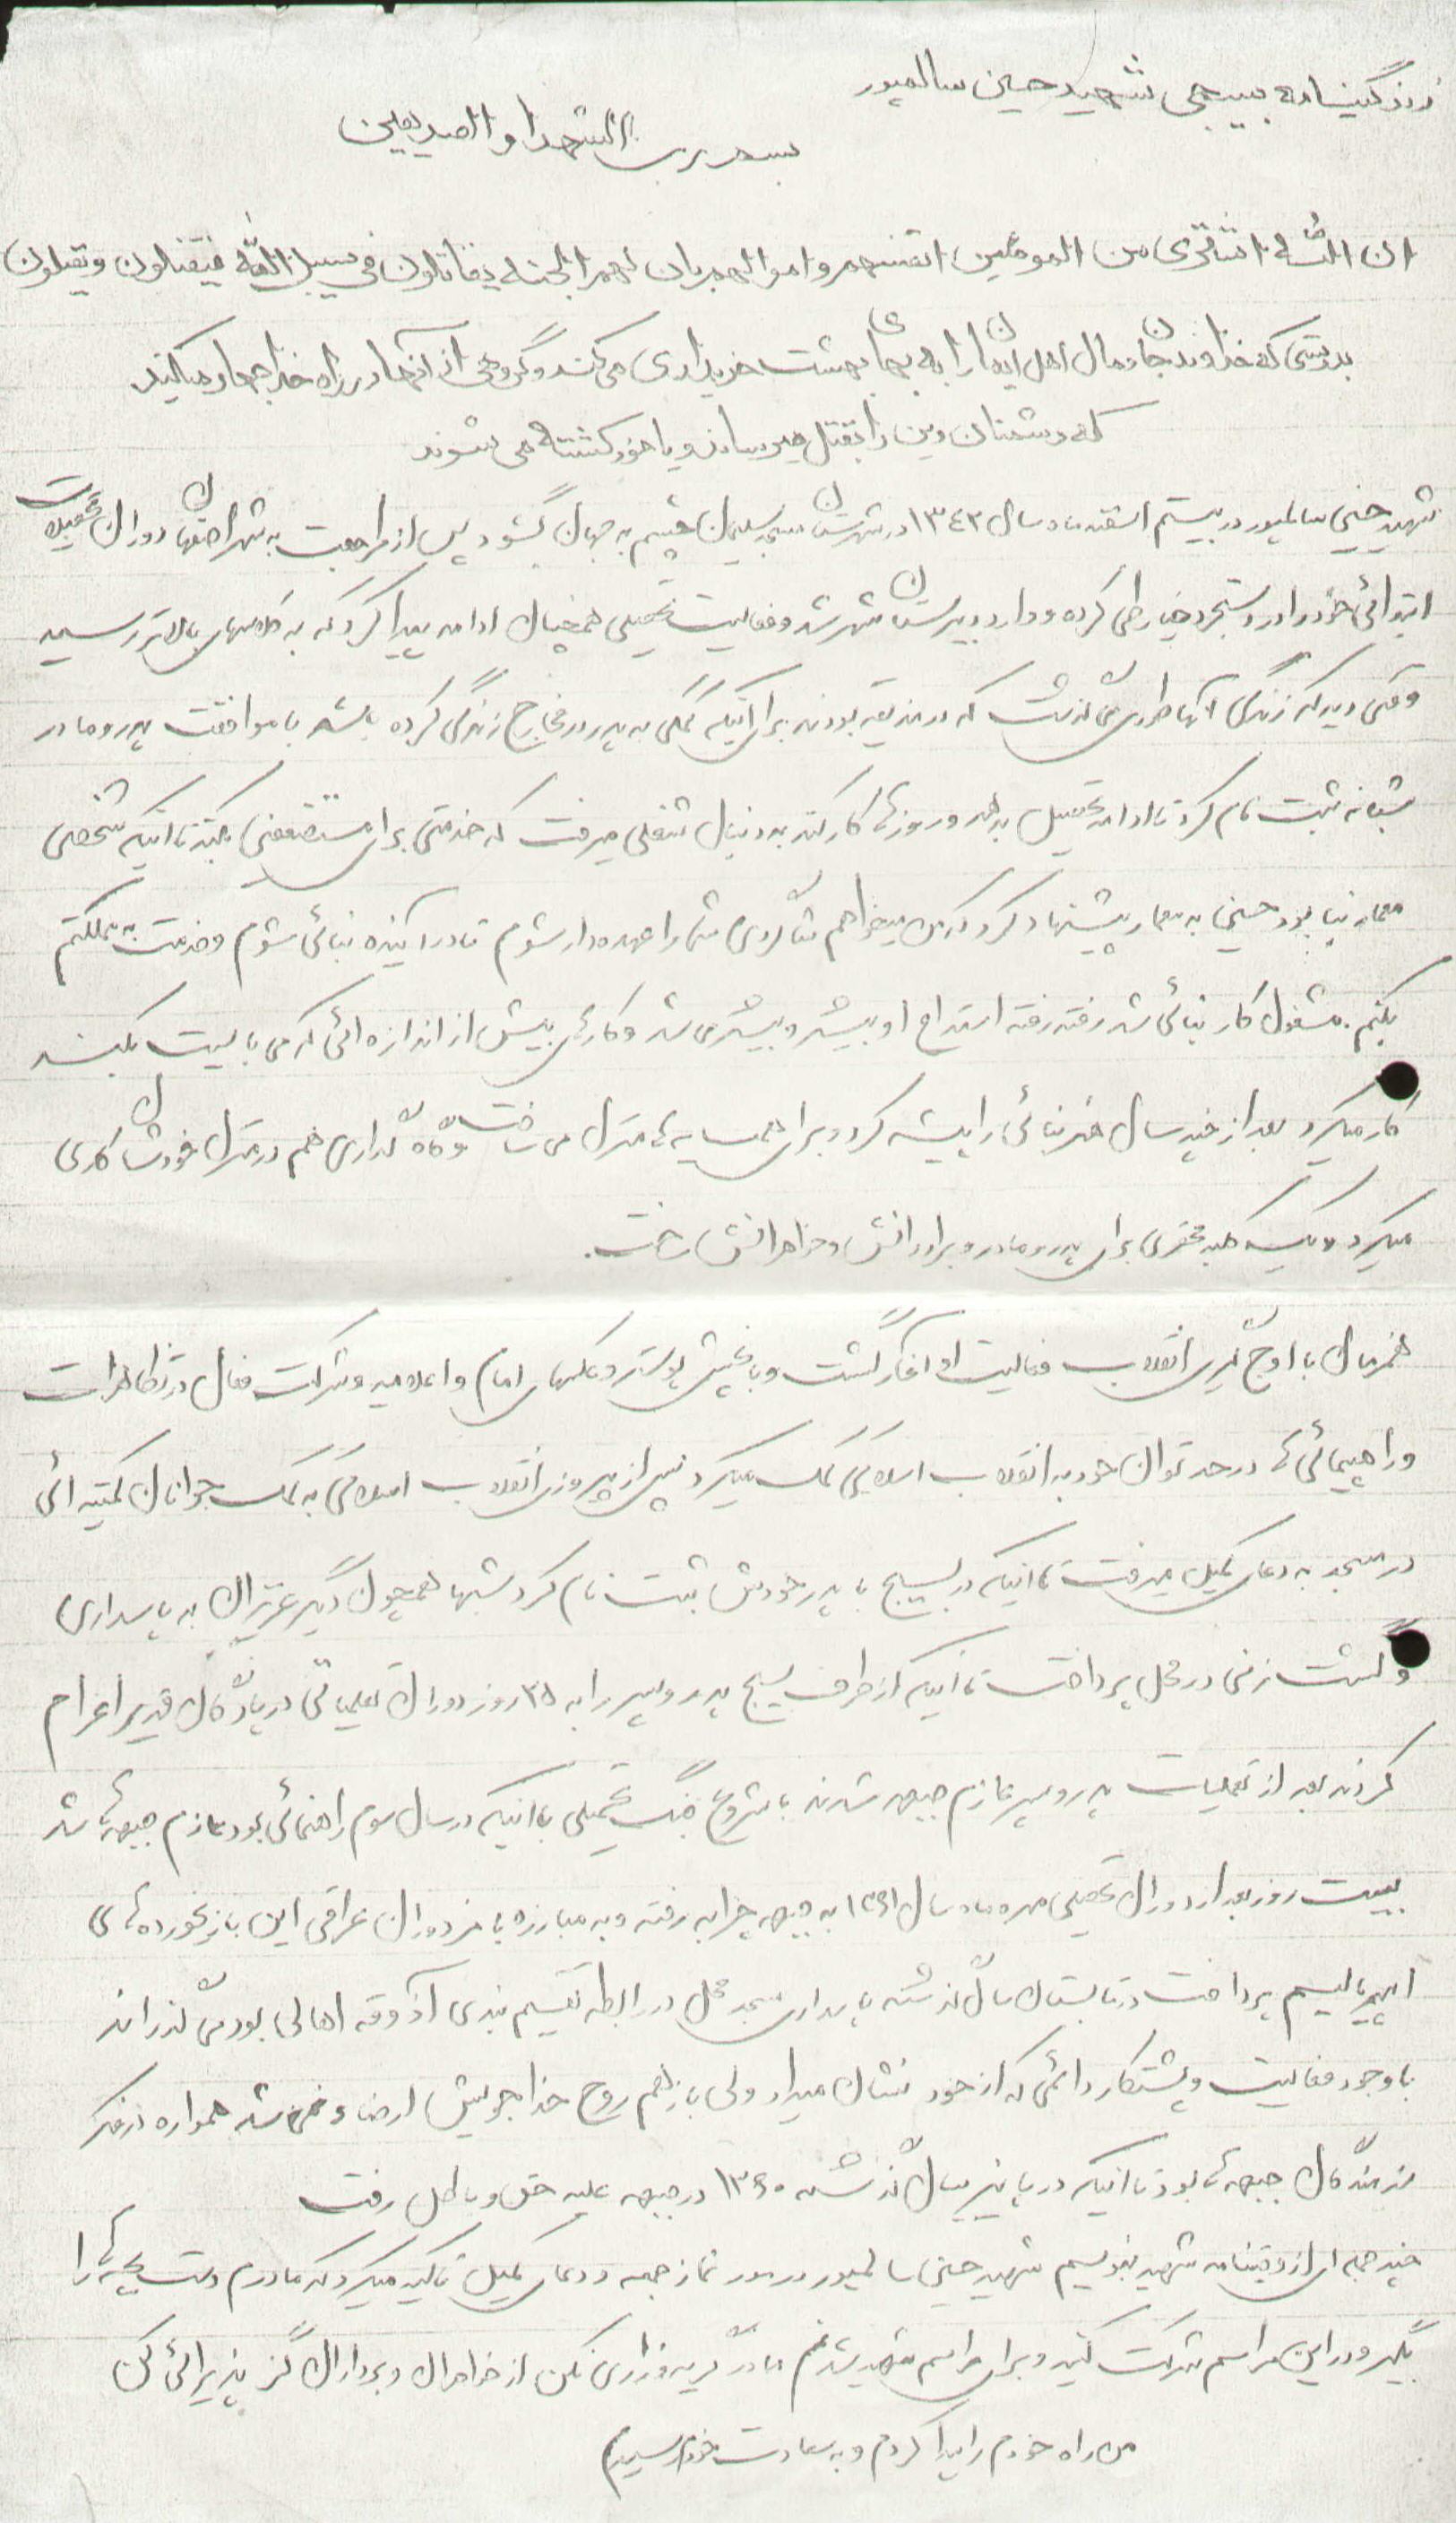 زندگینامه بسیجی شهید حسین سالمپور
بسم رب الشهدا و الصدیقین
ان الله اشتری من المومنین انفسهم و اموالهم بان لهم الجنه یقاتلون فی سبیل الله فیقتلون و یقتلون
بدرستی که خداوند جان و مال اهل ایمان را به بهای بهشت خریداری می کند و گروهی از آنها در راه خدا جهاد میکنند
که دشمنان دین را بقتل میرسانند و یا خود کشته می شوند
شهید حسین سالمپور در بیستم اسفند ماه سال ۱۳۴۳ در شهرستان مسجد سلیمان چشم به جهان گشود پس از مراجعت به شهر اصفهان دوران تحصیلات
ابتدائی خود را در دستجرد خیار طی کرده و وارد دبیرستان شهر شد و فعالیت تحصیلی همچنان ادامه پیدا کرد که به کلاسهای بالاتر رسید
وقتی دید که زندگی آنها طوری می گذشت که در مضیقه بودند برای اینکه کمکی به پدر در مخارج زندگی کرده باشد با موافقت پدر و مادر
شبانه ثبت نام کرد تا ادامه تحصیل بدهد و روزها کار کند به دنبال شغلی میرفت که خدمتی برای مستضعفین بکند تا اینکه شخصی
معمار بنا بود حسین به معمار پیشنهاد کرد که من میخواهم شاگردی شما را عهده دار شوم تا در آینده بنائی شوم و خدمت به مملکتم
بکنم. مشغول کار بنائی شد رفته رفته استخراج او بیشتر و بیشتر می شد و کارهای بیش از اندازه ائی که می بایست بکند
کار میکرد بعد از چند سال هنر بنائی را پیشه کرد و برای همسایه ها منزل می ساخت و گاه گداری هم در منزل خودشان کاری
میکرد و یک کلبه محقری برای پدر و مادر و برادرانش و خواهرانش ساخت.
همزمان با اوج گیری انقلاب فعالیت او آغاز گشت و با پخش پوستر و عکسهای امام و اعلامیه و شرکت فعال در تظاهرات
و راهپیمائی ها در حد توان خود به انقلاب اسلامی کمک میکرد پس از پیروزی انقلاب اسلامی به کمک جوانان کمیته ائی
در مسجد به دعای کمیل میرفت تا اینکه در بسیج با پدر خودش ثبت نام کرد شبها همچون دگیر عزیزان به پاسداری
و گشت زنی در محل پرداخت تا اینکه از طرف بسیج پدر و پسر را به ۲۵ روز دوران تعلیماتی در پادگان قدیر اعزام
کردند بعد از تعلیمات پدر و پسر عازم جبهه شدند با شروع جنگ تحمیلی با اینکه در سال سوم راهنمائی بود عازم جبهه ها شد
بیست روز بعد از دوران تحصیلی مهر ماه سال ۱۳۶۱ به جبهه چزابه رفته و به مبارزه با مزدوران عراقی این بازیخورده های
امپریالیسم پرداخت در تابستان سال گذشته پاسداری مسجد محل در رابطه تقسیم بندی آذوقه اهالی بود می گذراند
با وجود فعالیت و پشتکار دائمی که از خود نشان میداد ولی باز هم روح خداجویش ارضاء نمی شد همواره در فکر
رزمندگان جبهه ها بود تا اینکه در پاییز سال گذشته ۱۳۶۰ در جبهه علیه حق و باطل رفت
چند جمله ای از وصیتنامه شهید بنویسم شهید حسین سالمپور در مورد نماز جمعه و دعای کمیل تاکید میکرد که مادرم دست بچه ها را
بگیر و در این مراسم شرکت کنید و برای مراسم شهید شدنم مادر گریه و زاری نکن از خواهران و برادران گز پذیرائی کن
من راه خودم را پیدا کردم و به سعادت خود رسیدم